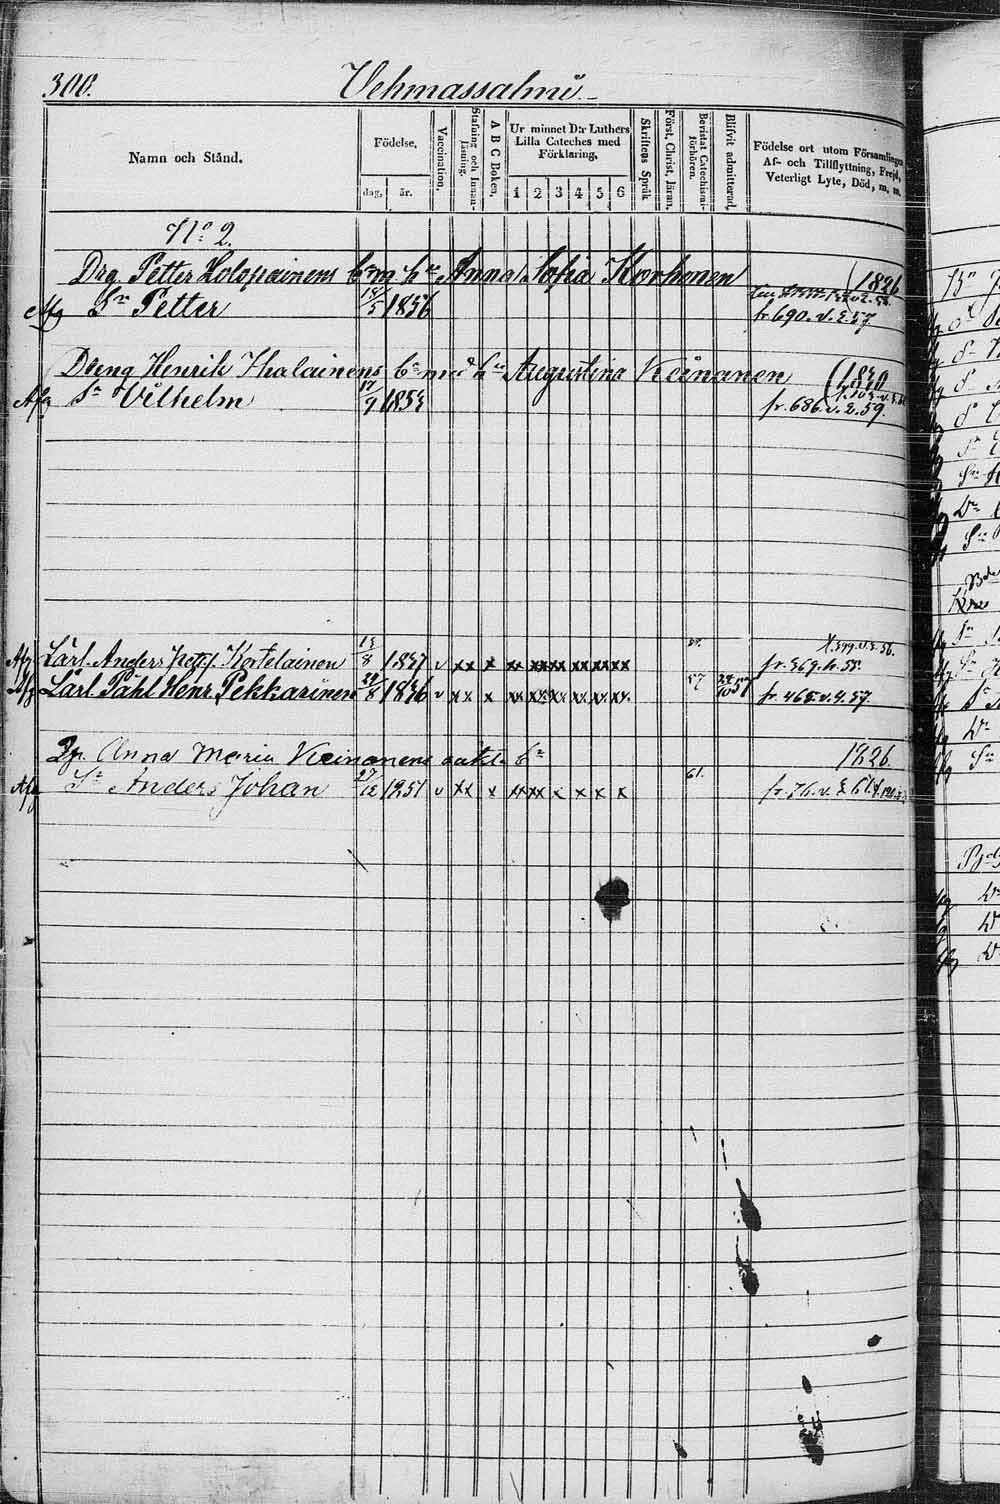 300. Vehmassalmi
Namn och Stånd.
Födelse,
dag, år.
Vaccination,
Stafning och Innan-läsning,
A B C Boken,
Ur minnet D:r Luthers
Lilla Cateches med
Förklaring,
1 2 3 4 5 6
Skriftens Språk
Först. Christ. Läran,
Bevistat Catechismi-förhören.
Blifvit admitterad,
Födelse ort utom Församlingen
Af- och Tillflyttning, Frejd,
Veterligt Lyte, Död, m. m.
No 2.
Drg Petter Lolopainens Anna Sofia Korhonen 1826
Afg Sn Petter 1856 fr. 690. v. 2. 57.
Dreng Henrik Augustina Keinanen 1830
Afg Sn Vilhelm 17/9 1853 fr. 686. v. 2. 59.
Afg Lärl. Anders Kortelainen 1837 v xx x xx xx xx xx xx xx fr. 369. h. 55.
Afg Lärl Påhl Henr Pekkarinen 1836 v xx x xx xx xx xx xx xx 57 fr. 465. v. 4. 57.
Anna Maria Keinanens 1826.
Afg Sn Anders Johan 27/12 1851 v xx x xx xx x x x x 61. fr. 76. v.